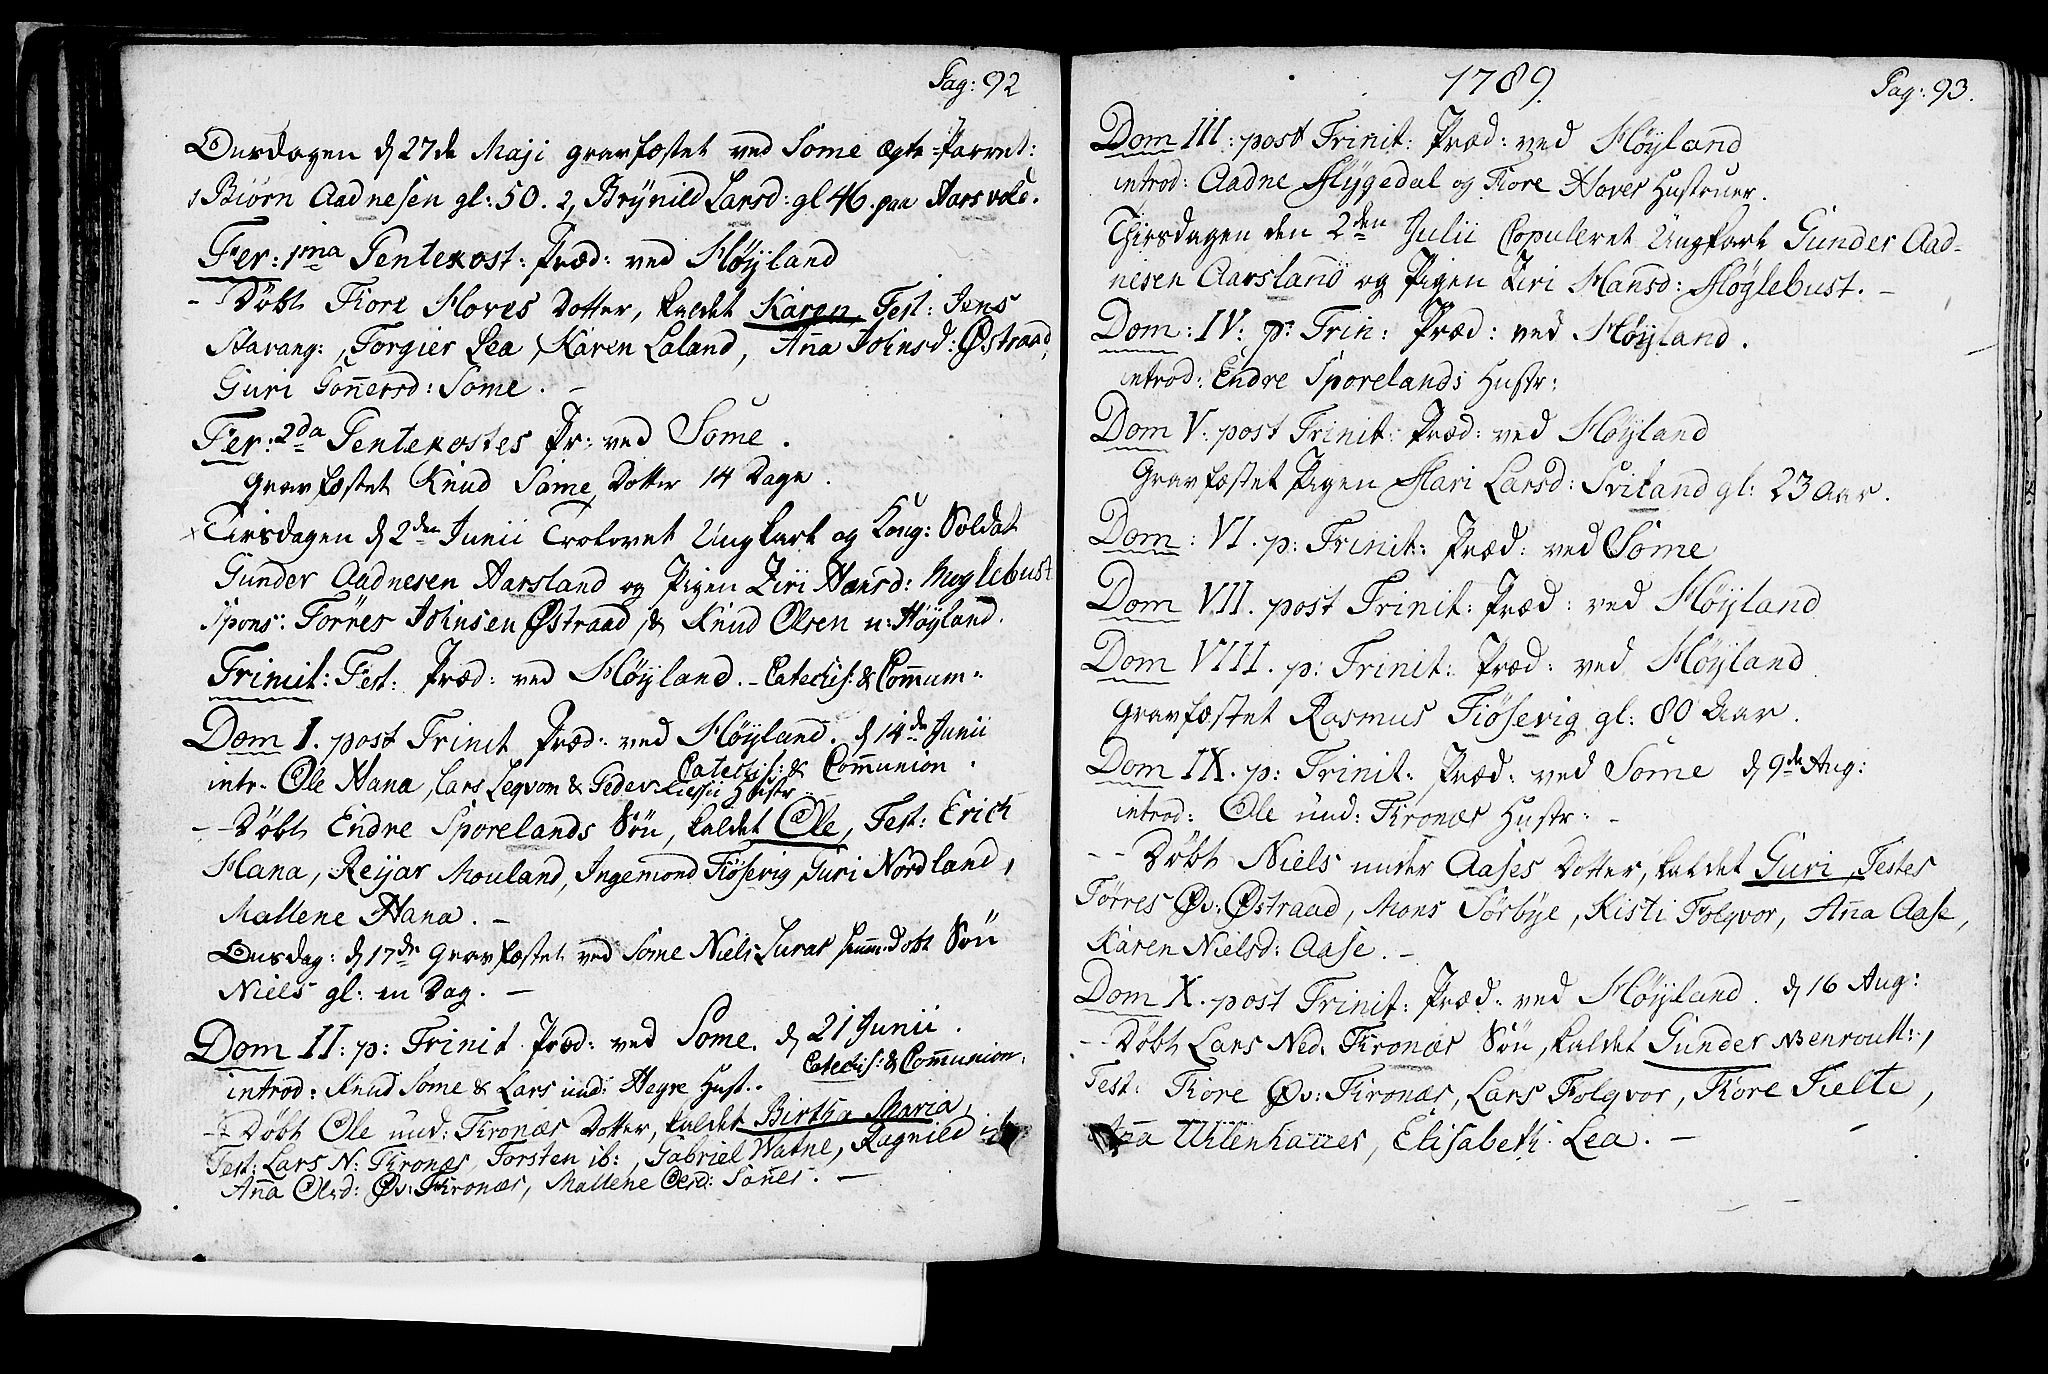 Pag: 92
Onsdagen d 27de Maji gravfæstet ved Some ægte-Parret:
1 Biörn Aadnesen gl: 50. 2, Brÿnild Larsd: gl 46. paa Aarsvold.
Fer: 1ma Pentekost: Præd: ved Høÿland
- Döbt Tore Hoves Dotter, kaldet Karen, Test: Jens
Stavang:, Torgier Lea, Karen Laland, Aña Johnsd: Østraad,
Guri Goñersd: Some. -
Fer: 2da Pentekostes Pr: ved Some.
Gravfæstet Knud Some, Dotter 14 Dage.
Tirsdagen d 2den Junii Trolovet Ungkarl og Kong: Soldat
Gunder Aadnesen Aarsland og Pigen Ziri Hansd: Høglebust
Spons: Törres Johnsen Østraad, & Knud Olsen u: Høÿland.
Trinit: Fest: Præd: ved Høÿland. - Catechis: & Com̄un:
Dom I. post Trinit Præd: ved Høÿland. d 14de Junii
Catechis: & Com̄union.
intr. Ole Hana, Lars Leqvom & Peder Hustr:
- - Döbt Endre Sporelands Sön, kaldet Ole, Test: Erich
Hana, Reijar Mouland, Ingemond Tiösevig, Guri Nordland,
Mallene Hana. -
Onsdag: d 17de Gravfæstet ved Some Niels Luras döbt Sön
Niels gl: en Dag. -
Dom II: p: Trinit. Præd: ved Some. d 21 Junii.
Catechis: & Com̄union.
introd: Knud Some & Lars und: Hegre Hust:.
- Döbt Ole und: Kronæs Dotter, kaldet Birtha Maria,
Test: Lars N: Kronæs, Torsten ib:, Gabriel Watne, Ragnild ib:
Aña Olsd: Øv: Kronæs, Mallene Oled: Somes. -
1789.
Pag: 93.
Dom III: post Trinit: Præd: ved Høÿland
introd: Aadne Hÿgedal og Tore Hoves Hustruer.
Thirsdagen den 2den Julii Copuleret Ungkarl Gunder Aad-
nesen Aarsland og Pigen Ziri Hansd: Høglebust. -
Dom: IV: p: Trin: Præd: ved Høÿland.
introd: Endre Sporelands Hustr:
Dom V: post Trinit: Præd: ved Høÿland
Gravfæstet Pigen Mari Larsd: Sviland gl: 23 Aar.
Dom: VI. p: Trinit: Præd: ved Some
Dom VII. post Trinit: Præd: ved Høÿland
Dom VIII. p: Trinit: Præd: ved Høÿland
Gravfæstet Rasmus Tiösevig gl: 80 Aar.
Dom IX. p: Trinit: Præd: ved Some d 9de Aug:
introd: Ole und: Kronæs Hustr: -
- - Döbt Niels under Aases Dotter, kaldet Guri, Testes
Törres Øv: Østraad, Mons Sörbÿe, Kisti Folqvor, Aña Aase,
Karen Nielsd: Aase. -
Dom X. post Trinit: Præd: ved Høÿland. d 16 Aug:
- - Döbt Lars Ned: Kronæs Sön, kaldet Gunder NB enroull:,
Test: Tore Øv: Kronæs, Lars Folqvor, Tore Tielte,
Aña Uhlenhaues, Elisabeth Lea. -